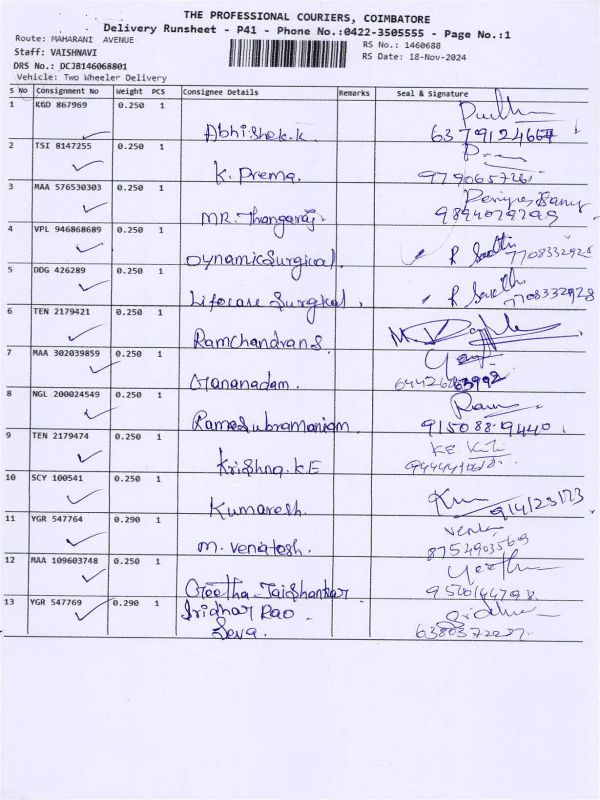 THE PROFESSIONAL COURIERS, COIMBATORE
Delivery Runsheet - P41 - Phone No.:0422-3505555 - Page No.:1
Route: MAHARANI AVENUE
RS No.: 1460688
Staff: VAISHNAVI
RS Date: 18-Nov-2024
DRS No.: DCJB146068801
Vehicle: Two Wheeler Delivery
S No Consignment No Weight PCS Consignee Details Remarks Seal & Signature
1 KGD 867969 0.250 1
Abhishek.k
2 TSI 8147255 0.250 1
K. Prema.
3 MAA 576530303 0.250 1
MR. Thangaraj.
4 VPL 946868689 0.250 1
Dynamic Surgical. 7708332928
5 DDG 426289 0.250 1
Lifocare Surgical. 7708332928
6 TEN 2179421 0.250 1
Ramchandran S.
7 MAA 302039859 0.250 1
Gananadam.
8 NGL 200024549 0.250 1
RameSubramaniam 9150889440
9 TEN 2179474 0.250 1
Krishna. KE
10 SCY 100541 0.250 1
Kumaresh.
11 YGR 547764 0.290 1
M. Venatosh. 8754903569
12 MAA 109603748 0.250 1
Geetha Jaishankar
13 YGR 547769 0.290 1 Sridhar Rao
Seva.